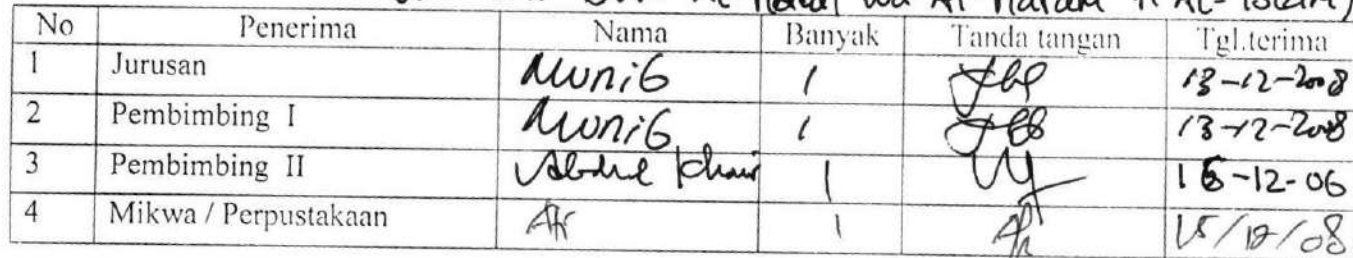 Al Halal wa Al Haram fi Al-Islam)
No Penerima Nama Banyak Tanda tangan Tgl.terima
1 Jurusan Munib 1 13-12-2008
2 Pembimbing I Munib 1 13-12-2008
3 Pembimbing II Abdul Khair 1 16-12-06
4 Mikwa / Perpustakaan 1 15/12/08